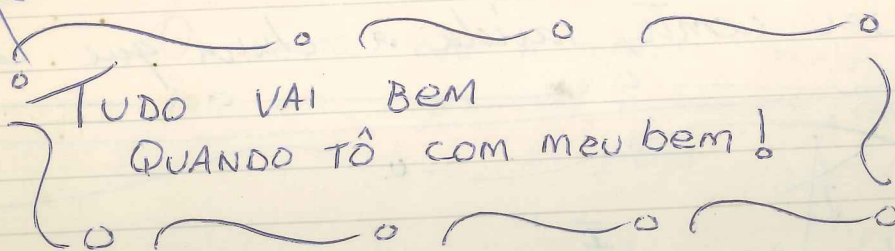 TUDO VAI BEM
QUANDO TÔ COM MEU bem!